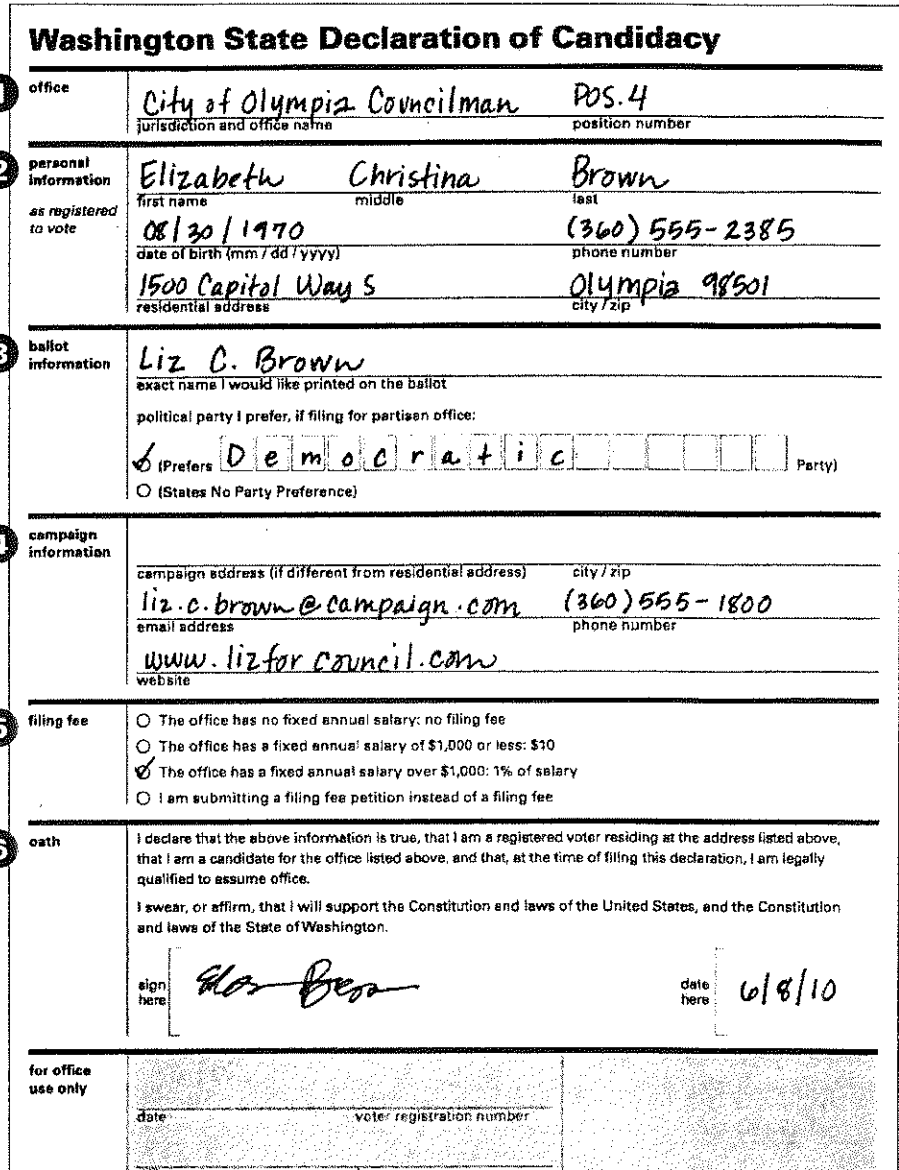 Washington State Declaration of Candidacy
1 office
City of Olympia Councilman Pos. 4
jurisdiction and office name position number
2 personal information
as registered to vote
Elizabeth Christina Brown
first name middle last
08/30/1970 (360) 555-2385
date of birth (mm / dd / yyyy) phone number
1500 Capitol Way S Olympia 98501
residential address city / zip
3 ballot information
Liz C. Brown
exact name I would like printed on the ballot
political party I prefer, if filing for partisan office:
(Prefers Democratic Party)
(States No Party Preference)
4 campaign information
campaign address (if different from residential address) city / zip
liz.c.brown@campaign.com (360) 555-1800
email address phone number
www.lizforcouncil.com
website
5 filing fee
The office has no fixed annual salary: no filing fee
The office has a fixed annual salary of $1,000 or less: $10
The office has a fixed annual salary over $1,000: 1% of salary
I am submitting a filing fee petition instead of a filing fee
6 oath
I declare that the above information is true, that I am a registered voter residing at the address listed above,
that I am a candidate for the office listed above, and that, at the time of filing this declaration, I am legally
qualified to assume office.
I swear, or affirm, that I will support the Constitution and laws of the United States, and the Constitution
and laws of the State of Washington.
sign here
date here 6/8/10
for office use only
date voter registration number